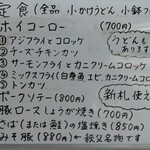 定食(全品 小かけうどん 小鉢
ホイコーロー (700円)
①アジフライとコロッケ
②チーズチキンカツ
③サーモンフライとカニクリームコロッケ
④ミックスフライ(白身魚 エビ カニクリームコロッケ)
⑤トンカツ
うどんも
あります
ポークソテー(800円)
新札使え
豚ロースしょうが焼き(700円)
さば(または鮭)の塩焼き(850円)
みそ豚(880円) ← 秩父名物です